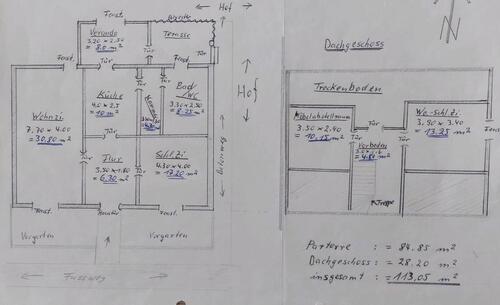 Fenst.
Hof
Veranda
3.20 x 2.50
= 8.0 m²
Terasse
Tür
Fenst.
Tür
Tür
Fenst.
Tür
Wohnzi
7.70 x 4.00
= 30.80 m²
Küche
4.0 x 2.5
= 10 m²
Tür
Tür
Bad
/WC
3.30 x 2.50
= 8.25 m²
Hof
Tür
Tür
Tür
Flur
3.50 x 1.80
= 6.30 m²
Tür
Schl.Zi
4.30 x 4.00
= 17.20 m²
Fenst.
Haustür
Fenst.
Vorgarten
Vorgarten
Fussweg
N
Dachgeschoss
Trockenboden
Möbelabstellraum
3.50 x 2.90
= 10.15 m²
Tür
Tür
Wo-Schl.Zi
3.90 x 3.40
= 13.25 m²
Vorboden
= 4.80 m²
Treppe
Parterre : = 84.85 m²
Dachgeschoss : = 28.20 m²
insgesamt : = 113,05 m²